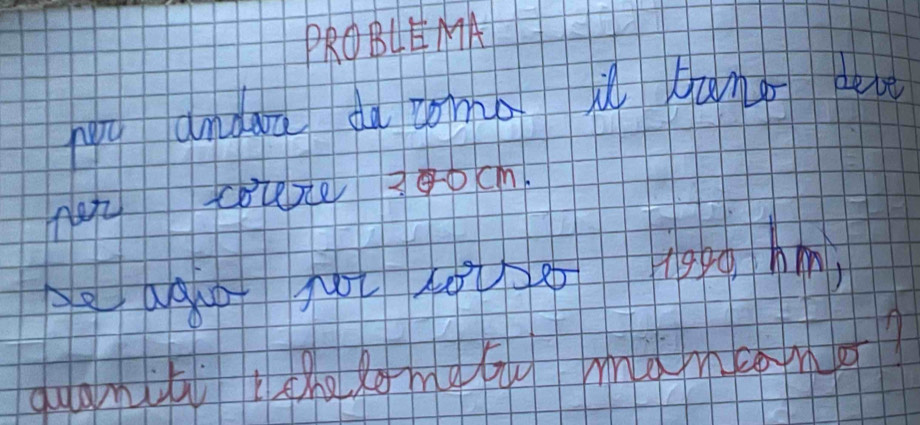 PROBLEMA
per andare da roma il treno deve
per correre 200 cm.
se agia per corso 1990 hm,
quaniti chelometry mancano?